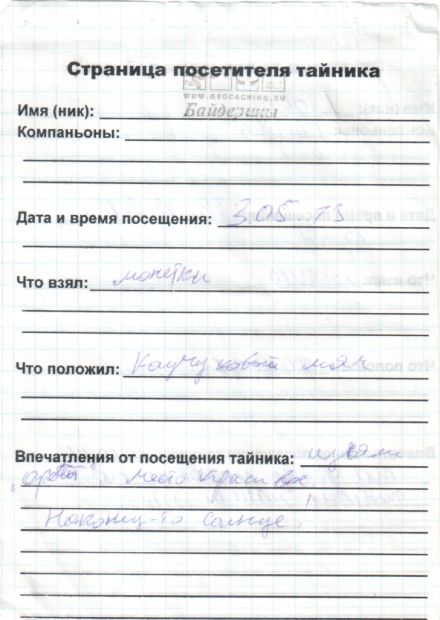 Страница посетителя тайника
WWW.GEOCACHING.SU
Имя (ник): Байдерины
Компаньоны:
Дата и время посещения: 3.05 13
Что взял: монетки
Что положил: Каучуковый мяч
Впечатления от посещения тайника: изъяли
место красивое.
Наконец-то солнце,